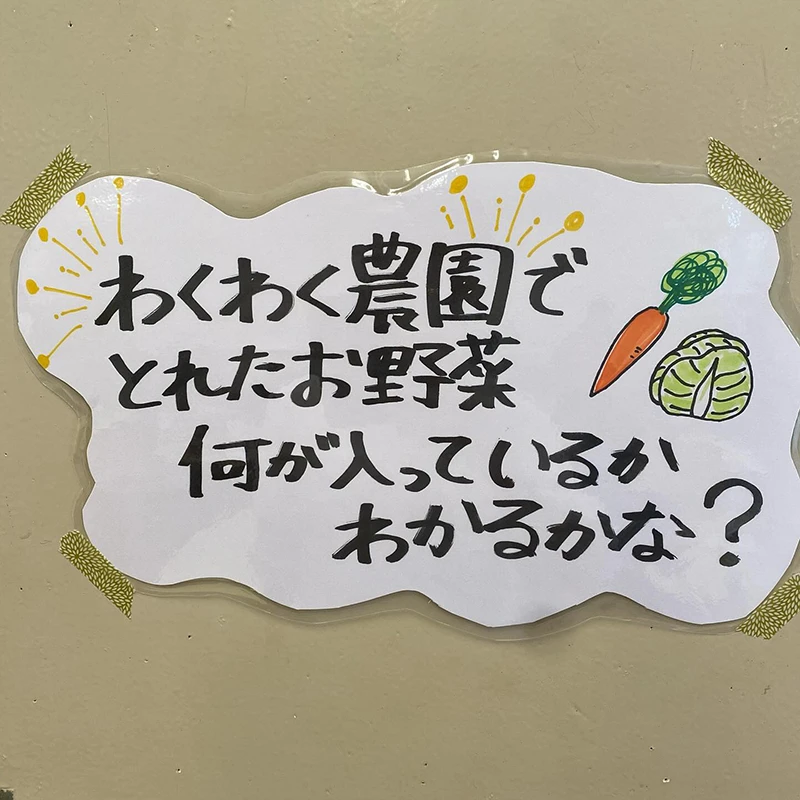 わくわく農園で
とれたお野菜
何が入っているか
わかるかな?